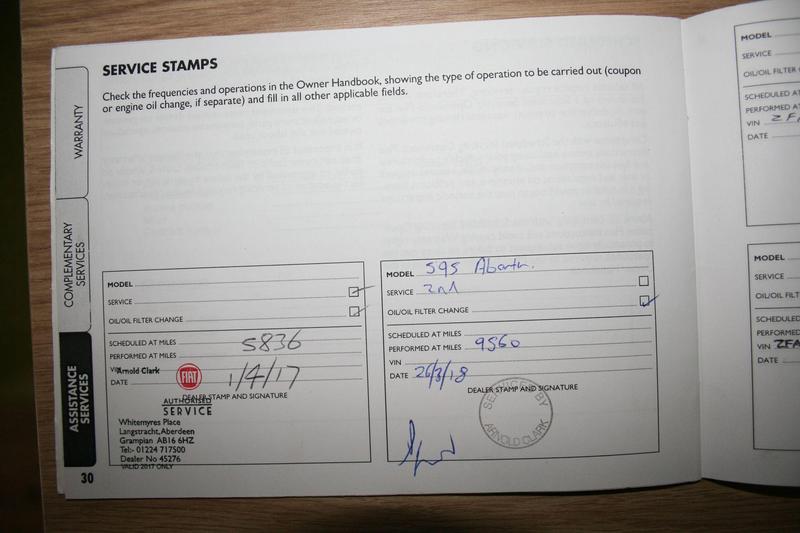 SERVICE STAMPS
Check the frequencies and operations in the Owner Handbook, showing the type of operation to be carried out (coupon
or engine oil change, if separate) and fill in all other applicable fields.
WARRANTY
COMPLEMENTARY
SERVICES
ASSISTANCE
SERVICES
MODEL
SERVICE
OIL/OIL FILTER CHANGE
SCHEDULED AT MILES 5836
PERFORMED AT MILES
VIN
Arnold Clark
FIAT
DATE 1/4/17
DEALER STAMP AND SIGNATURE
AUTHORISED
SERVICE
Whitemyres Place
Langstracht, Aberdeen
Grampian AB16 6HZ
Tel:- 01224 717500
Dealer No 45276
VALID 2017 ONLY
30
MODEL 595 Abarth.
SERVICE 2nd
OIL/OIL FILTER CHANGE
SCHEDULED AT MILES
PERFORMED AT MILES 9560
VIN
DATE 26/3/18
DEALER STAMP AND SIGNATURE
SERVICED BY
ARNOLD CLARK
MODEL
SERVICE
OIL/OIL FILTER
SCHEDULED AT
PERFORMED AT
VIN ZFA
DATE
MODEL
SERVICE
OIL/OIL FILT
SCHEDULED
PERFORMED
VIN ZFA
DATE